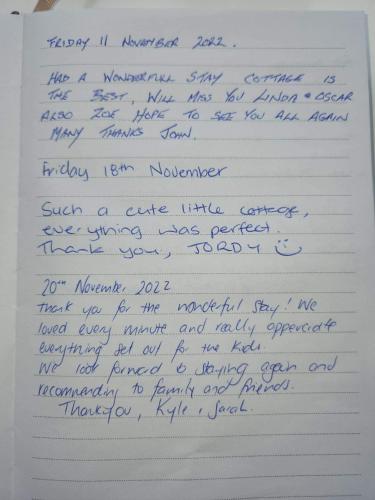 FRIDAY 11 NOVEMBER 2022.
HAD A WONDERFULL STAY COTTAGE IS
THE BEST, WILL MISS YOU LINDA & OSCAR
ALSO ZOE HOPE TO SEE YOU ALL AGAIN
MANY THANKS JOHN.
Friday 18th November
Such a cute little cottage,
everything was perfect.
Thank you, JORDY
20th November 2022
Thank you for the wonderful stay! We
loved every minute and really apperciate
everything set out for the kids.
We look forward to staying again and
recommending to family and friends.
Thankyou, Kyle & Sarah.